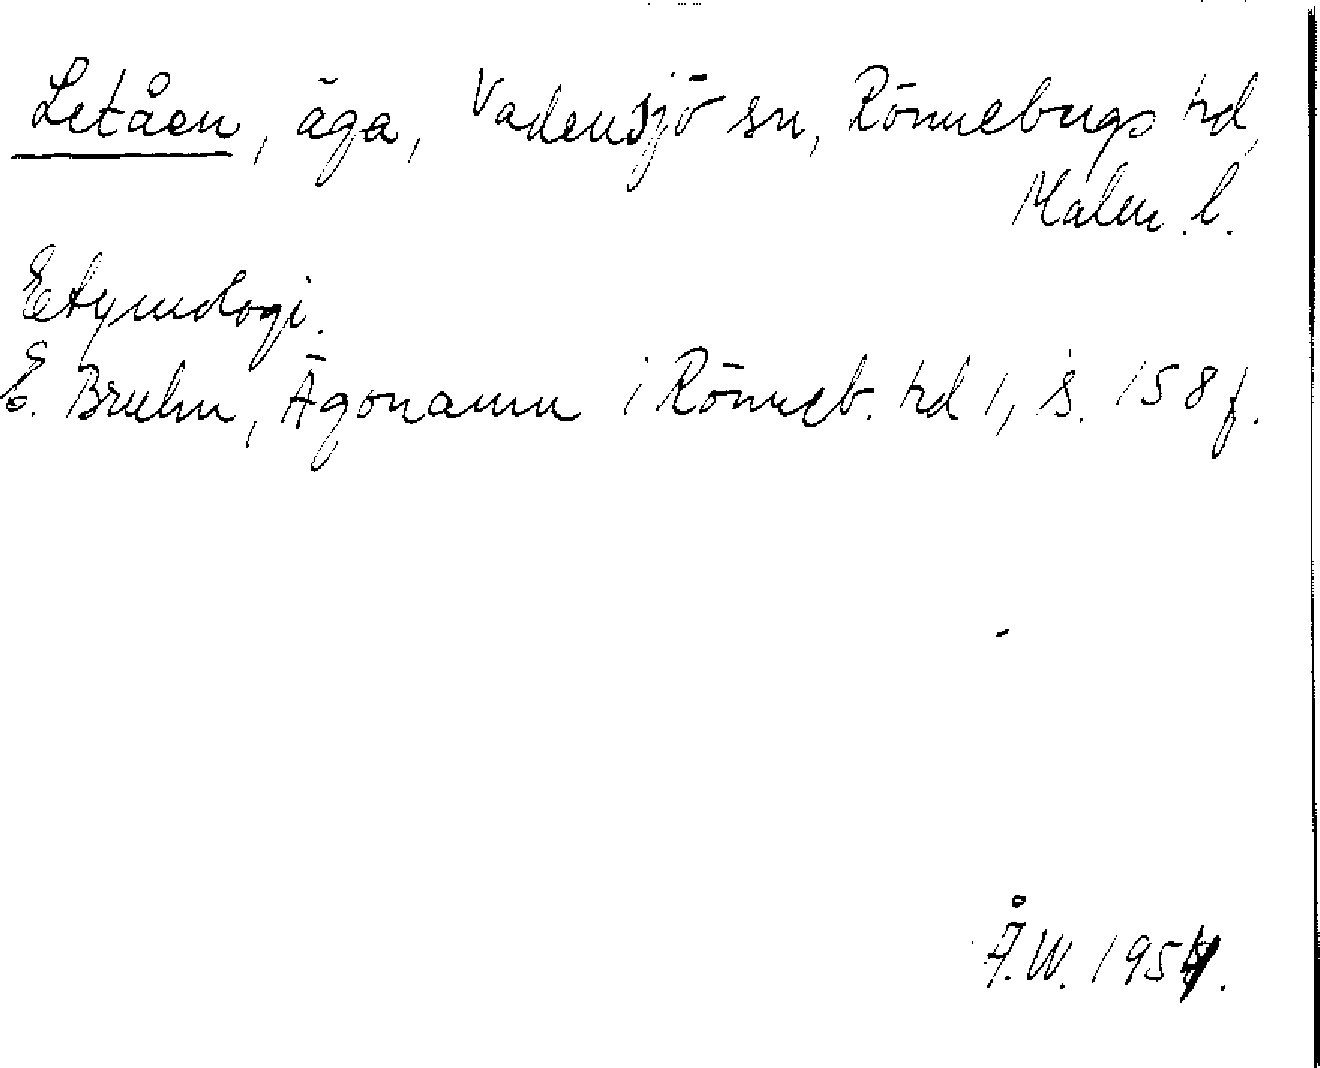 Letåen, äga, Vadensjö sn, Rönnebergs hd,
Malm. l.
Etymologi.
E. Bruhn, Ägonamn i Rönneb. hd 1, s. 158 f.
Å.W. 1954.